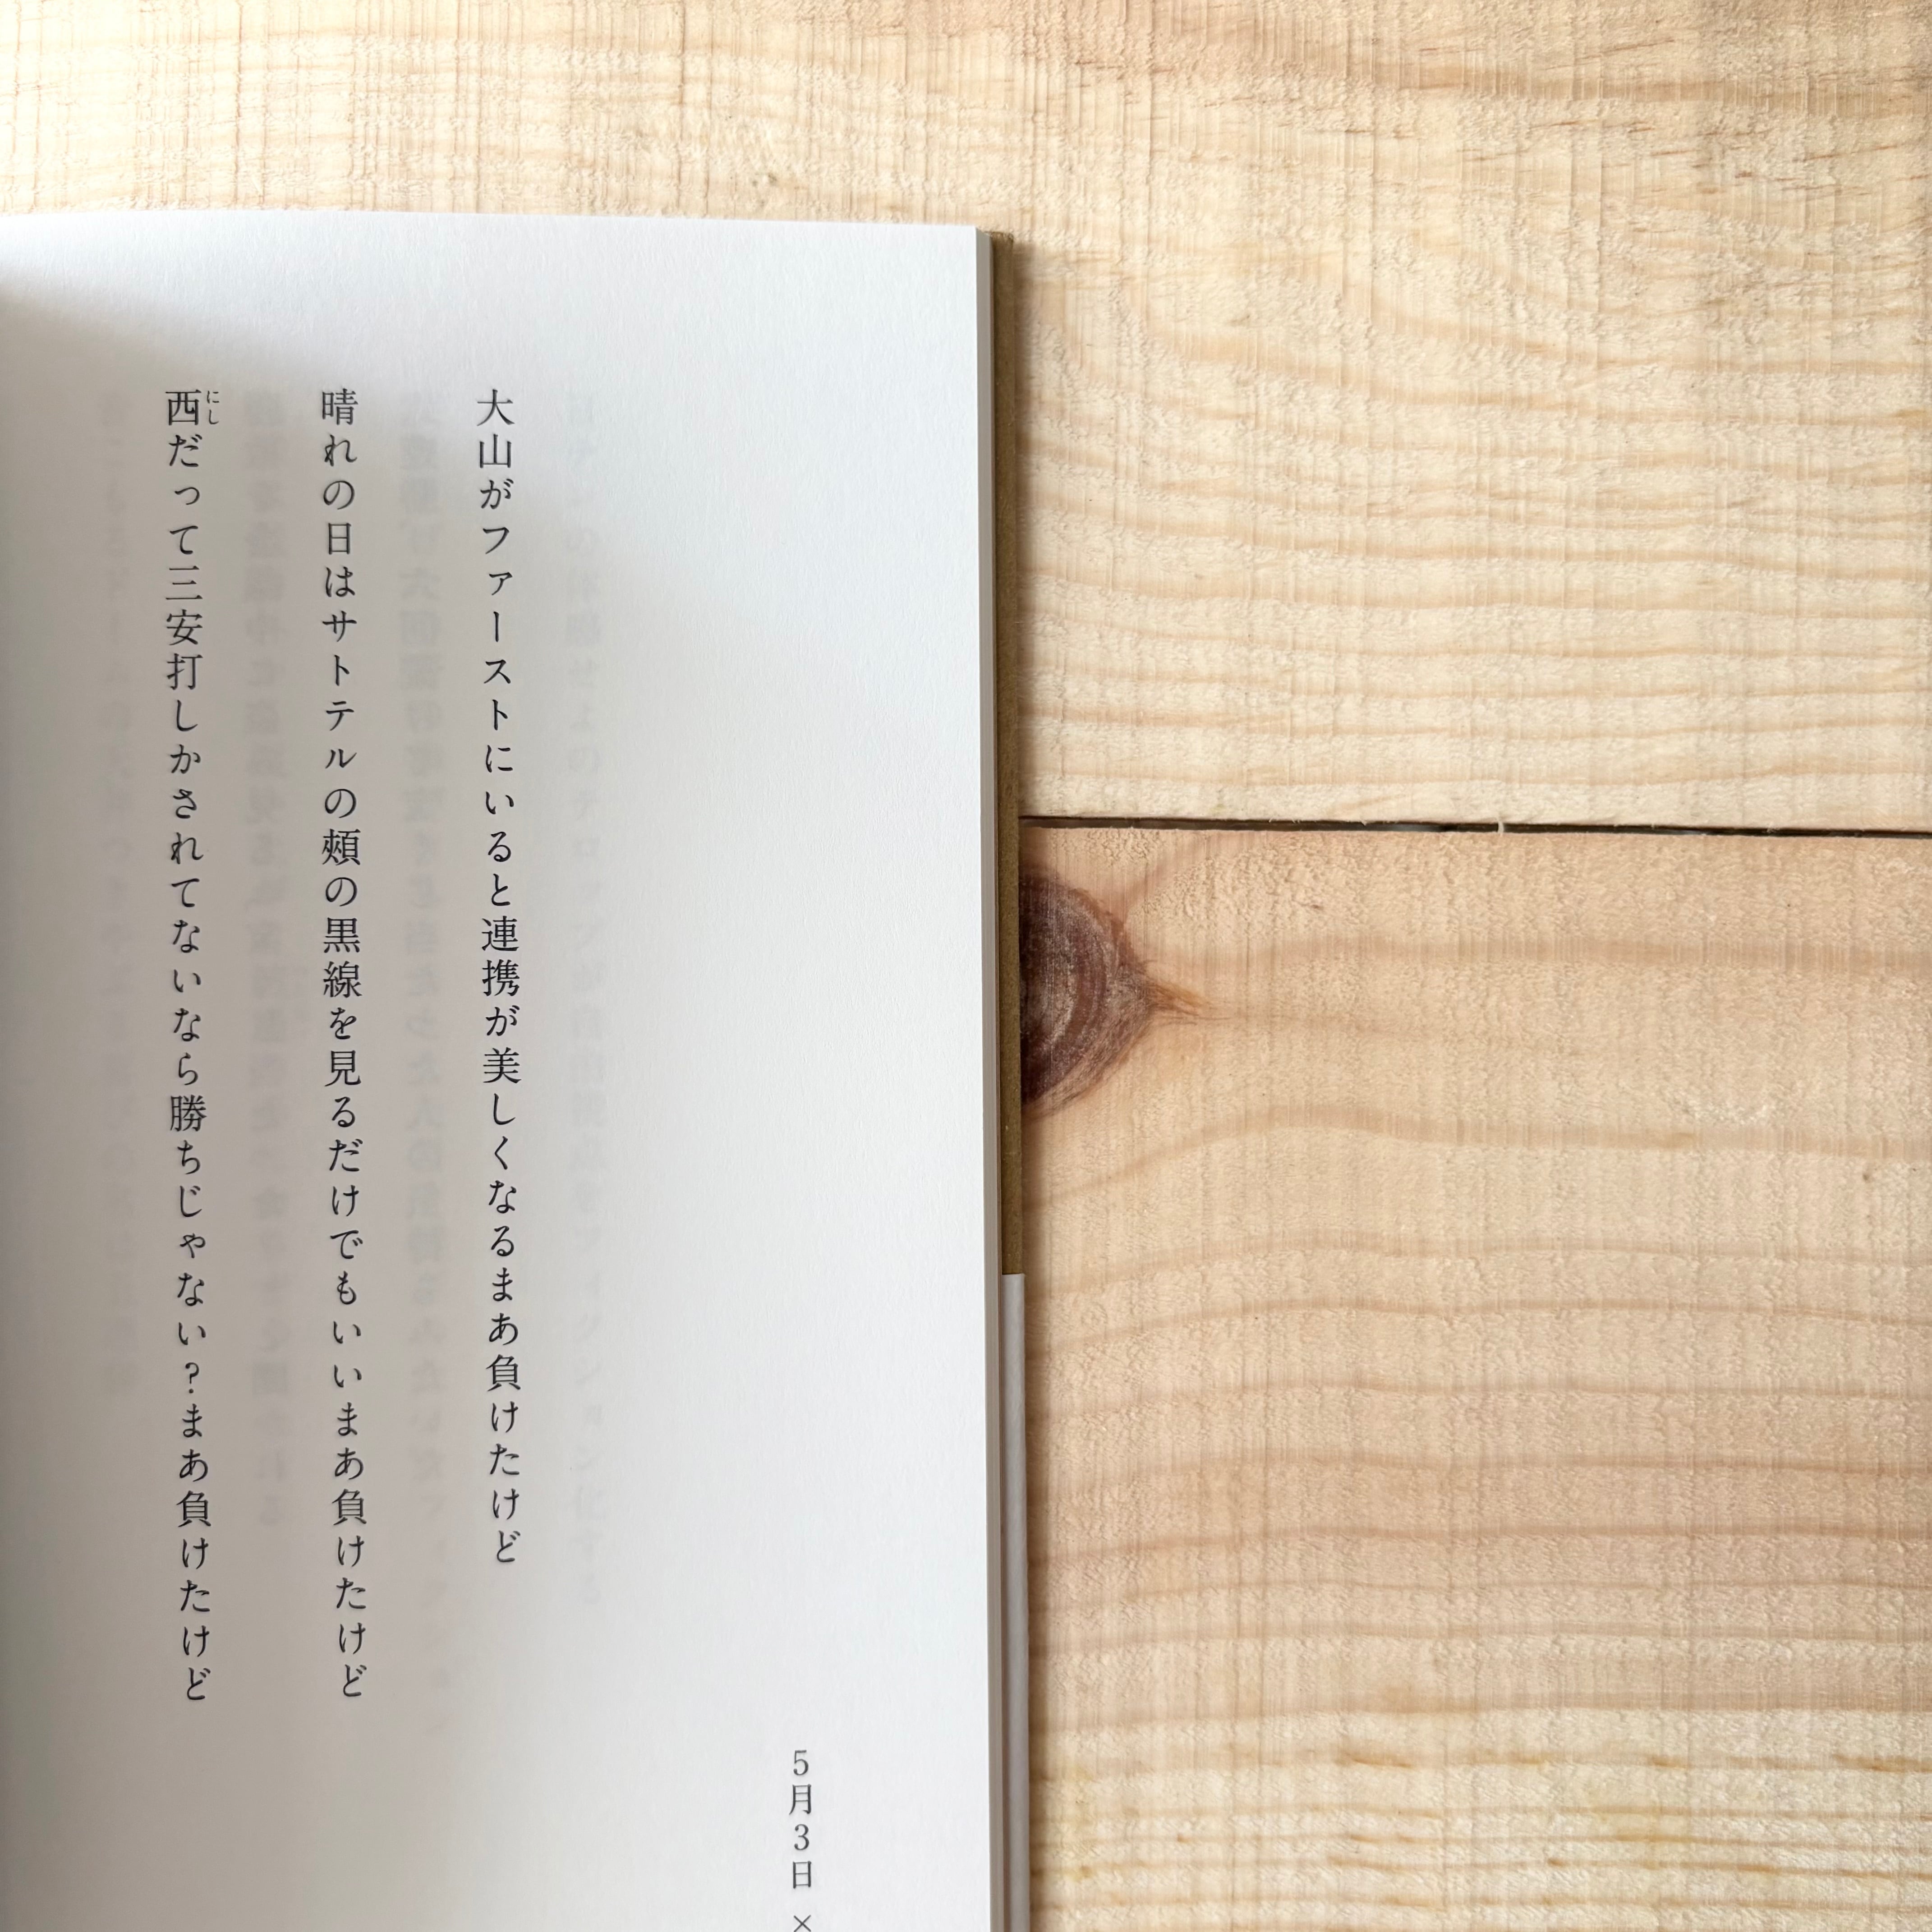 5月3日 ×
大山がファーストにいると連携が美しくなるまあ負けたけど
晴れの日はサトテルの頰の黒線を見るだけでもいいまあ負けたけど
西だって三安打しかされてないなら勝ちじゃない?まあ負けたけど
にし